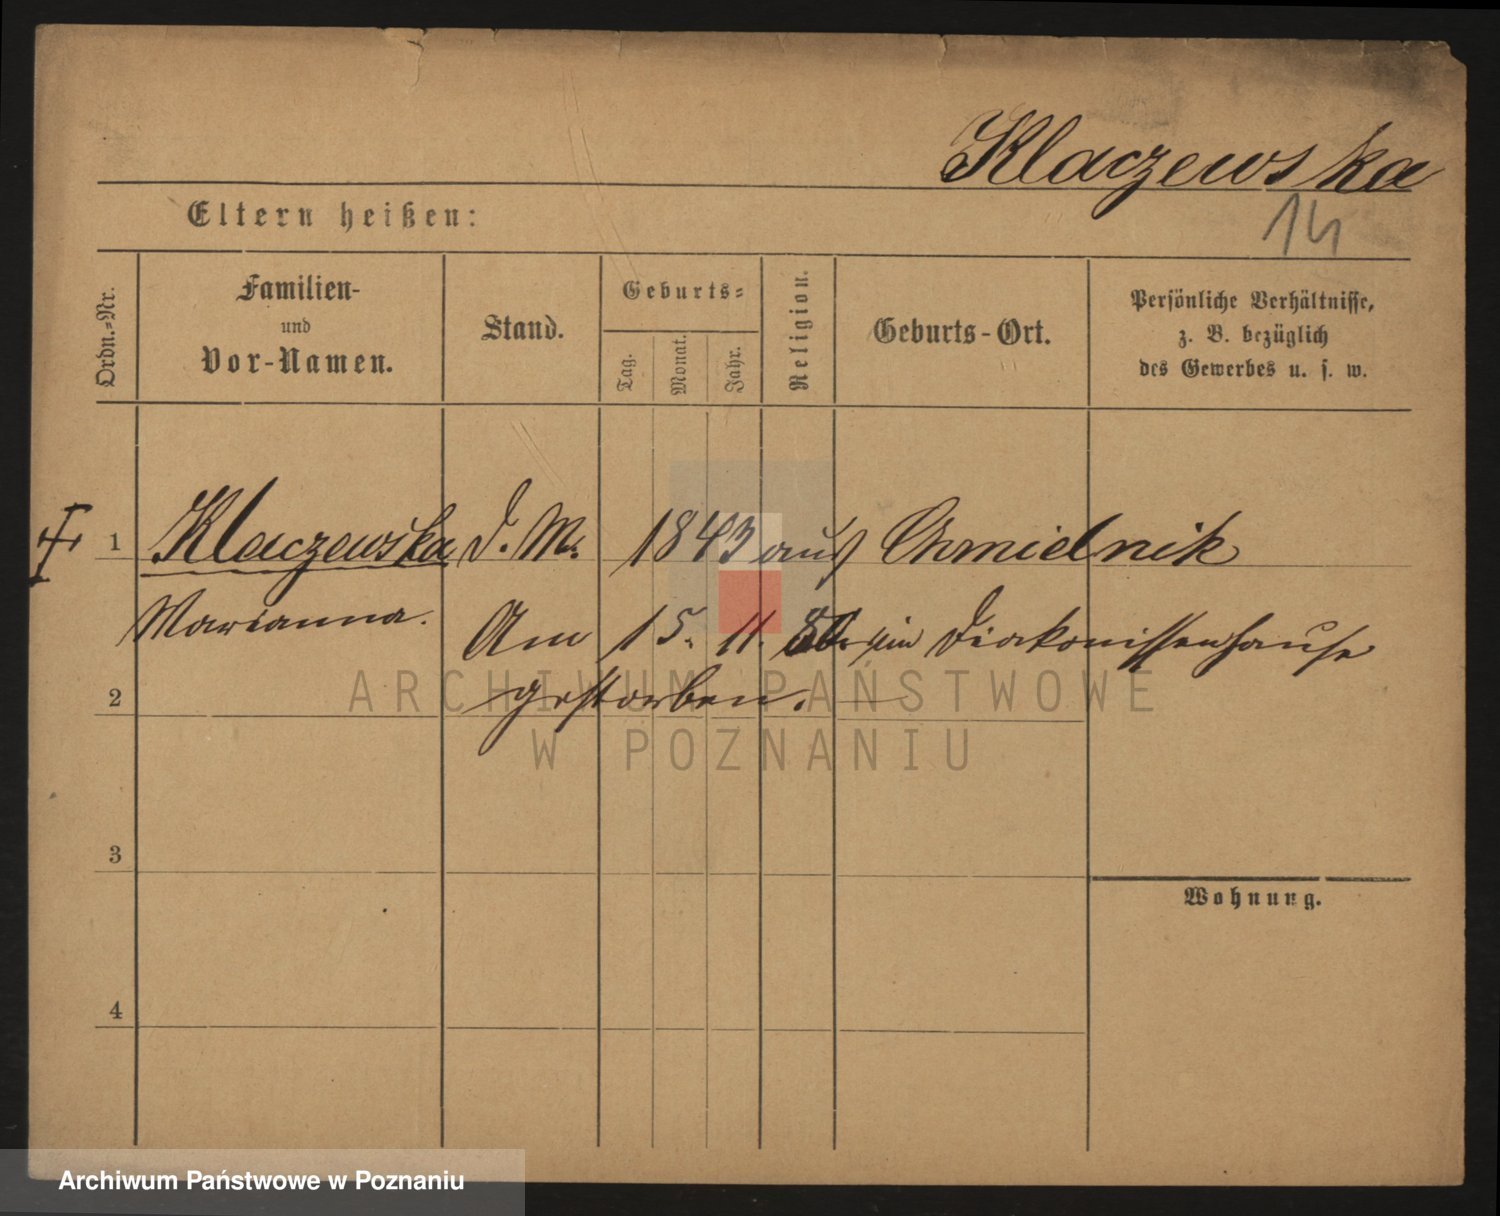 Klaczewska
14
Eltern heißen:
Ordn.-Nr.
Familien-
und
Vor-Namen.
Stand.
Geburts-
Tag.
Monat.
Jahr.
Religion.
Geburts-Ort.
Persönliche Verhältnisse,
z. B. bezüglich
des Gewerbes u. s. w.
1 Klaczewska d. M. 1843 aus Chmielnik
Marianna. Am 15. 11. im Diakonissenhause
2 gestorben.
ARCHIWUM PAŃSTWOWE
W POZNANIU
3
Wohnung.
4
Archiwum Państwowe w Poznaniu